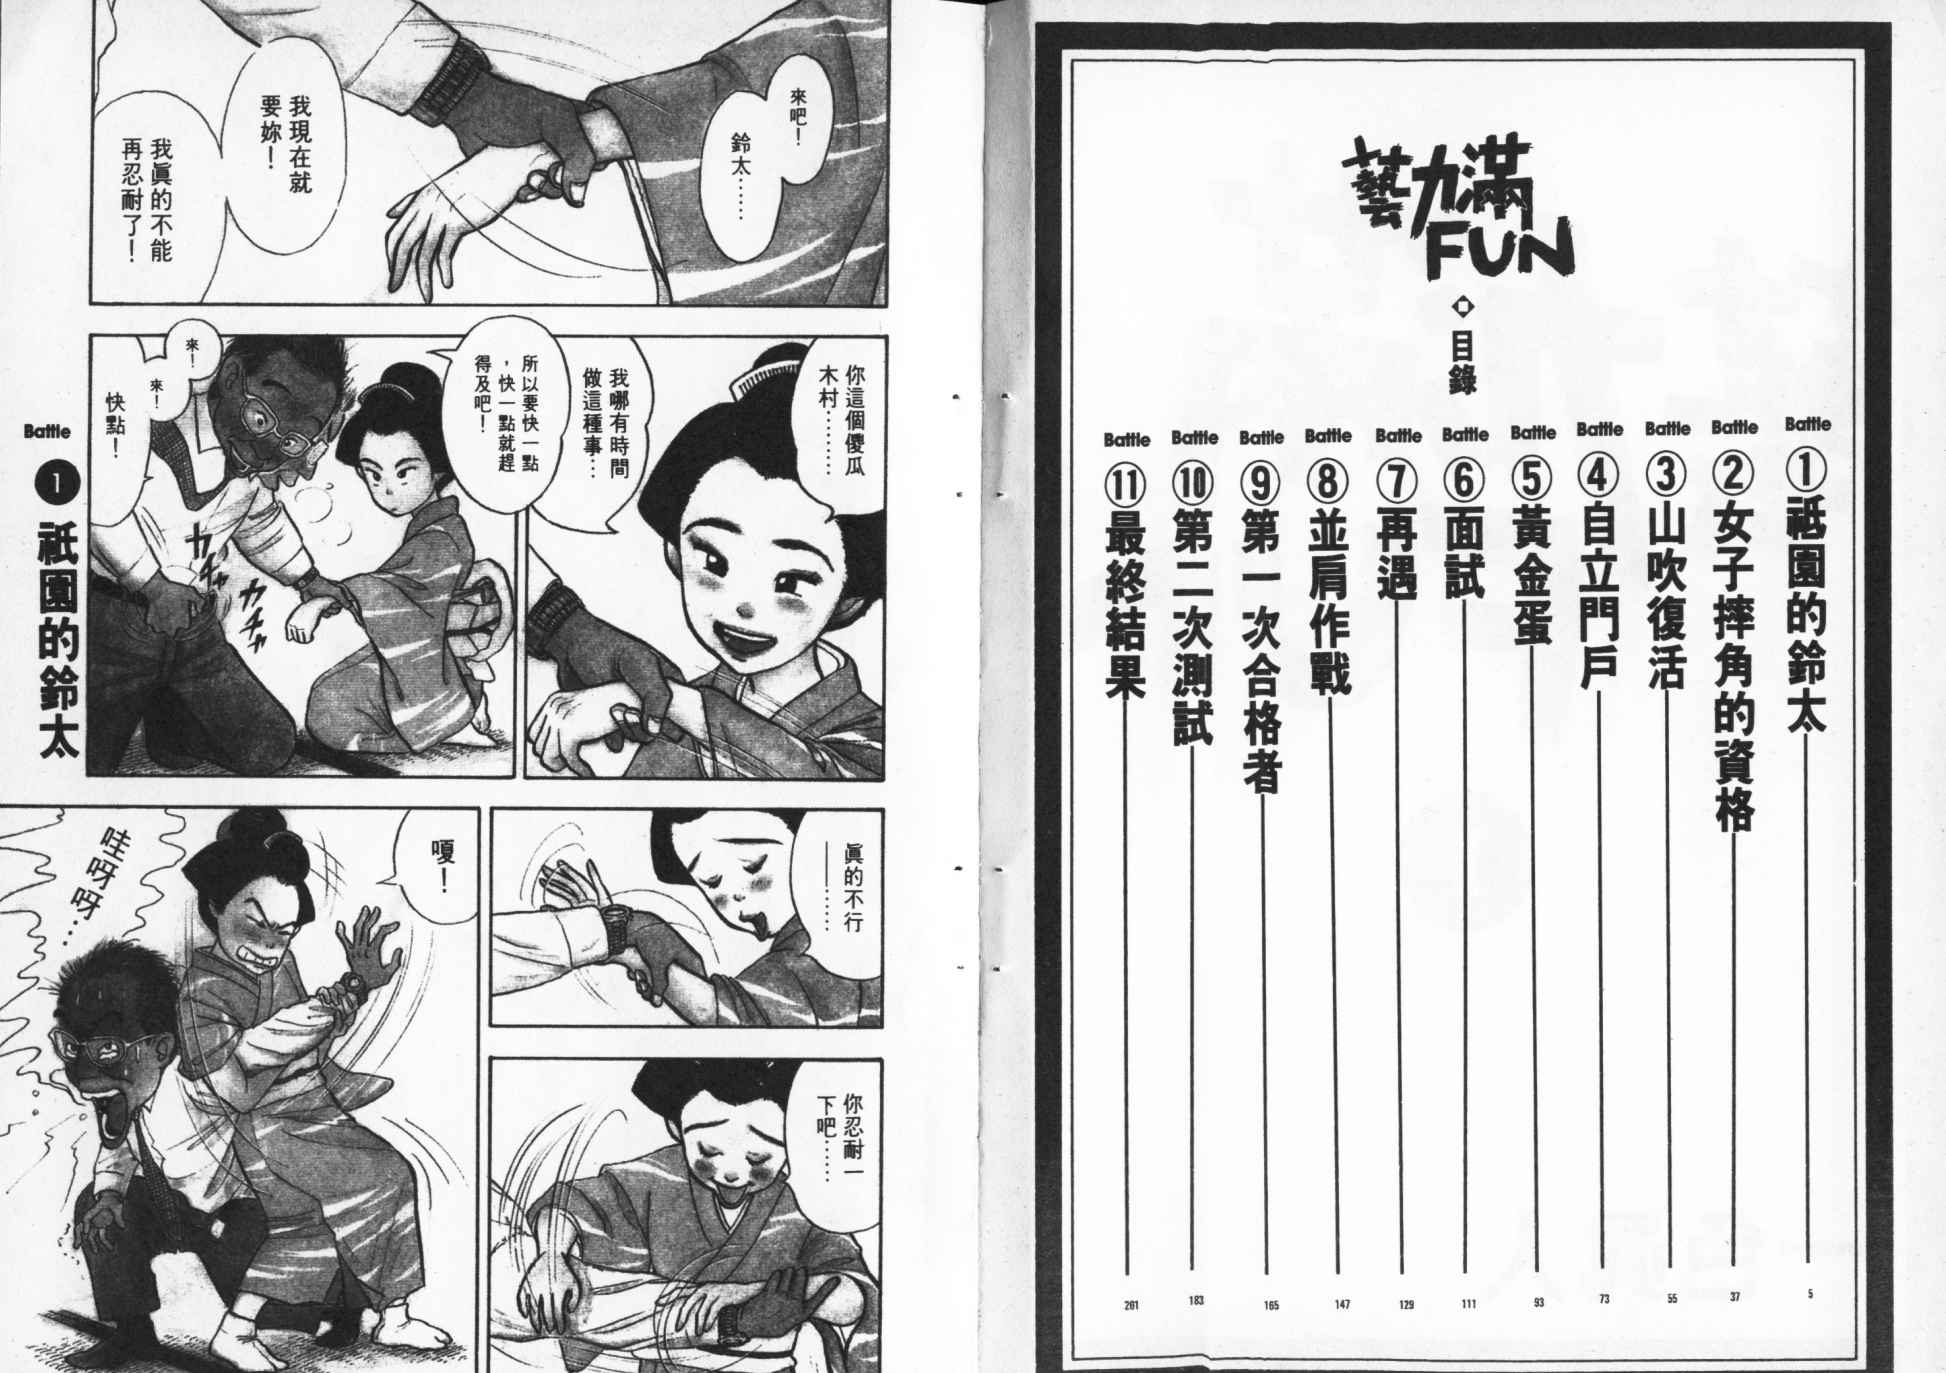 藝力滿
FUN
目錄
Battle
①祗園的鈴太
5
Battle
②女子摔角的資格
37
Battle
③山吹復活
55
Battle
④自立門戶
73
Battle
⑤黃金蛋
93
Battle
⑥面試
111
Battle
⑦再遇
129
Battle
⑧並肩作戰
147
Battle
⑨第一次合格者
165
Battle
⑩第二次測試
183
Battle
⑪最終結果
201
來吧！
鈴太……
我現在就
要妳！
我眞的不能
再忍耐了！
你這個傻瓜
木村………
我哪有時間
做這種事…
所以要快一點
，快一點就趕
得及吧！
來！
來！
快點！
カチャ
カチャ
Battle
1
祗園的鈴太
眞的不行
————……
你忍耐一
下吧……
嗄！
哇呀呀…